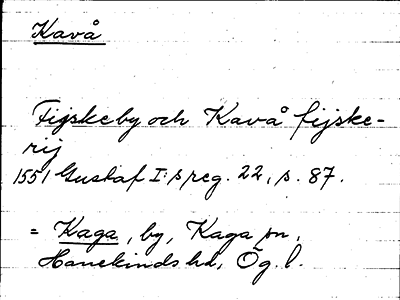 Kavå
Fijskeby och Kavå fijske-
rij
1551 Gustaf I:s reg. 22, s. 87.
= Kaga, by, Kaga sn,
Hanekinds hd, Ög. l.